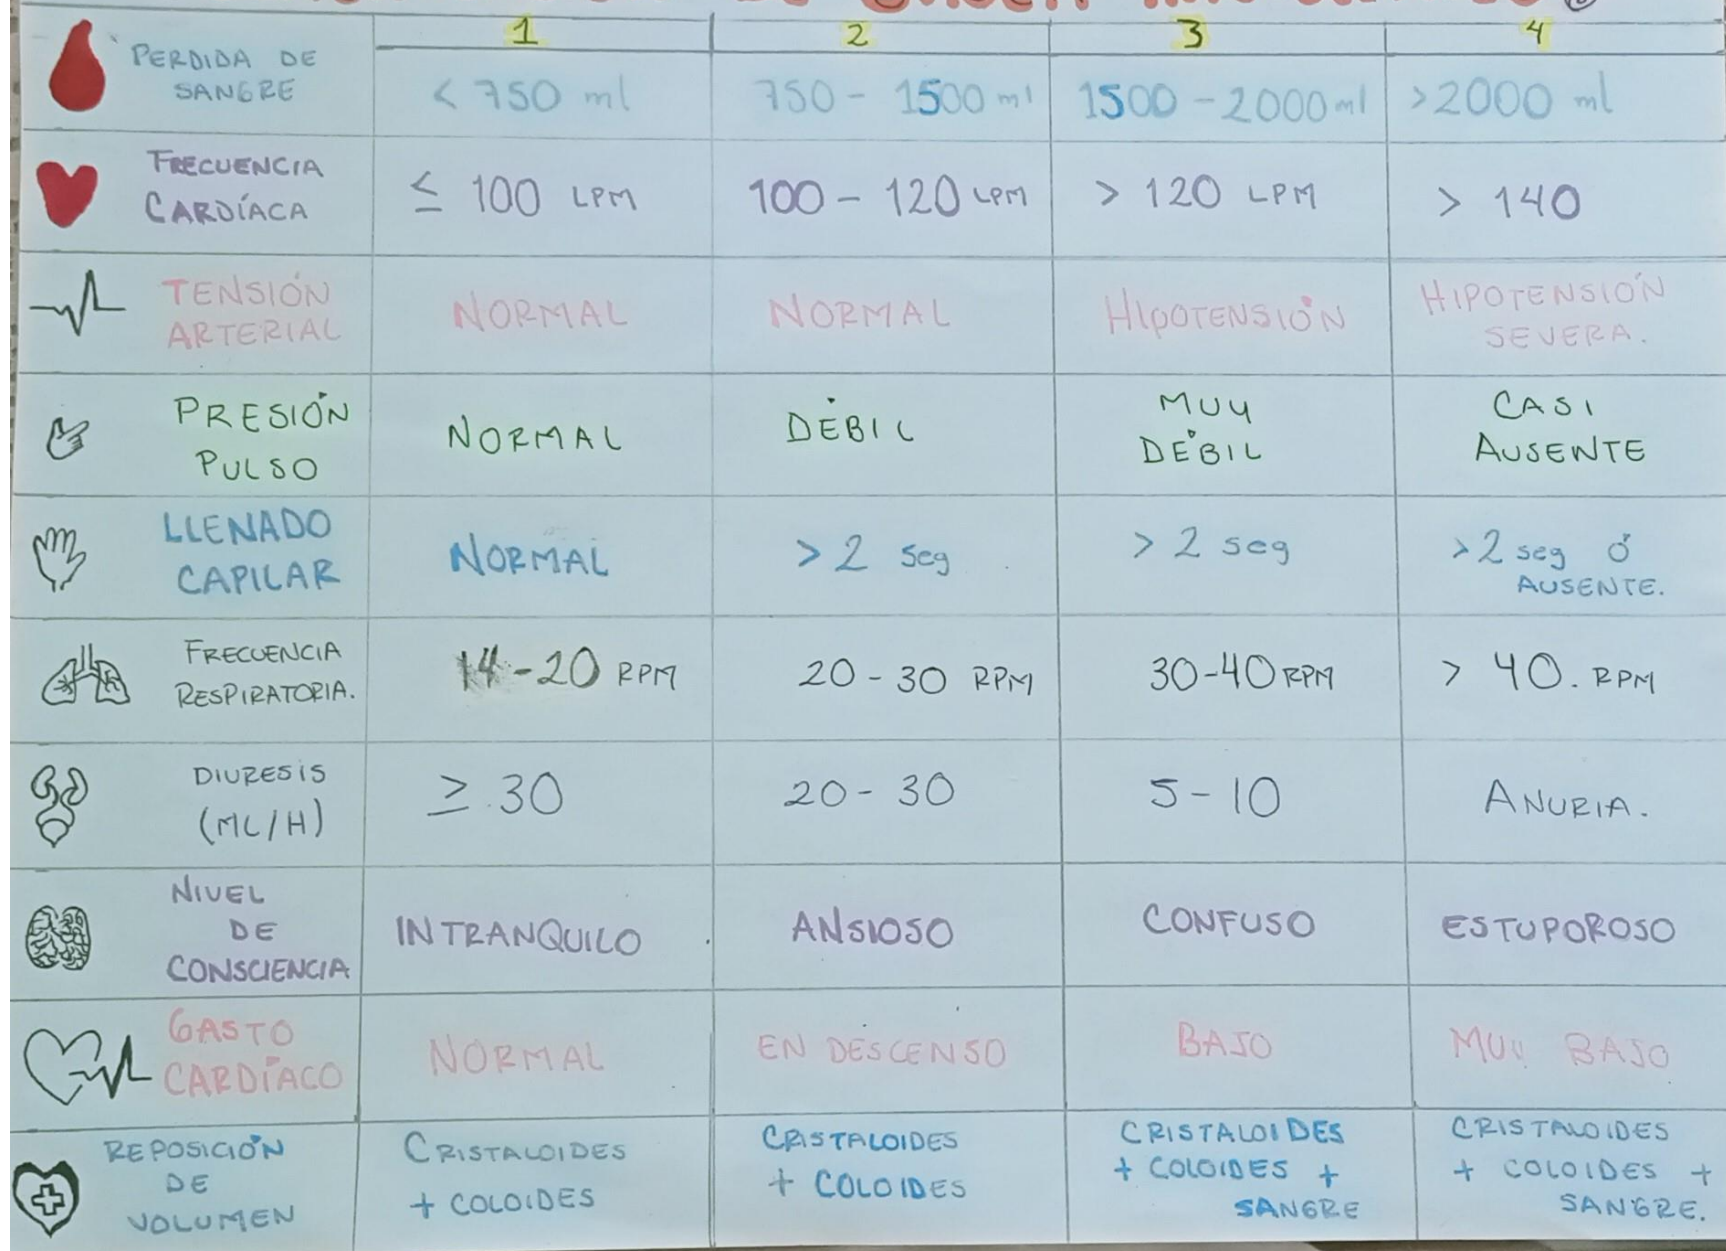 1 2 3 4
PERDIDA DE
SANGRE
< 750 ml
750 - 1500 ml
1500 - 2000 ml
>2000 ml
FRECUENCIA
CARDÍACA
≤ 100 LPM
100 - 120 LPM
> 120 LPM
> 140
TENSIÓN
ARTERIAL
NORMAL
NORMAL
HIPOTENSIÓN
HIPOTENSIÓN
SEVERA.
PRESIÓN
PULSO
NORMAL
DÉBIL
MUY
DÉBIL
CASI
AUSENTE
LLENADO
CAPILAR
NORMAL
> 2 seg
> 2 seg
>2 seg ó
AUSENTE.
FRECUENCIA
RESPIRATORIA.
14-20 RPM
20 - 30 RPM
30-40 RPM
> 40. RPM
DIURESIS
(ML/H)
≥ 30
20 - 30
5 - 10
ANURIA.
NIVEL
DE
CONSCIENCIA
INTRANQUILO
ANSIOSO
CONFUSO
ESTUPOROSO
GASTO
CARDÍACO
NORMAL
EN DESCENSO
BAJO
MUY BAJO
REPOSICIÓN
DE
VOLUMEN
CRISTALOIDES
+ COLOIDES
CRISTALOIDES
+ COLOIDES
CRISTALOIDES
+ COLOIDES +
SANGRE
CRISTALOIDES
+ COLOIDES +
SANGRE.